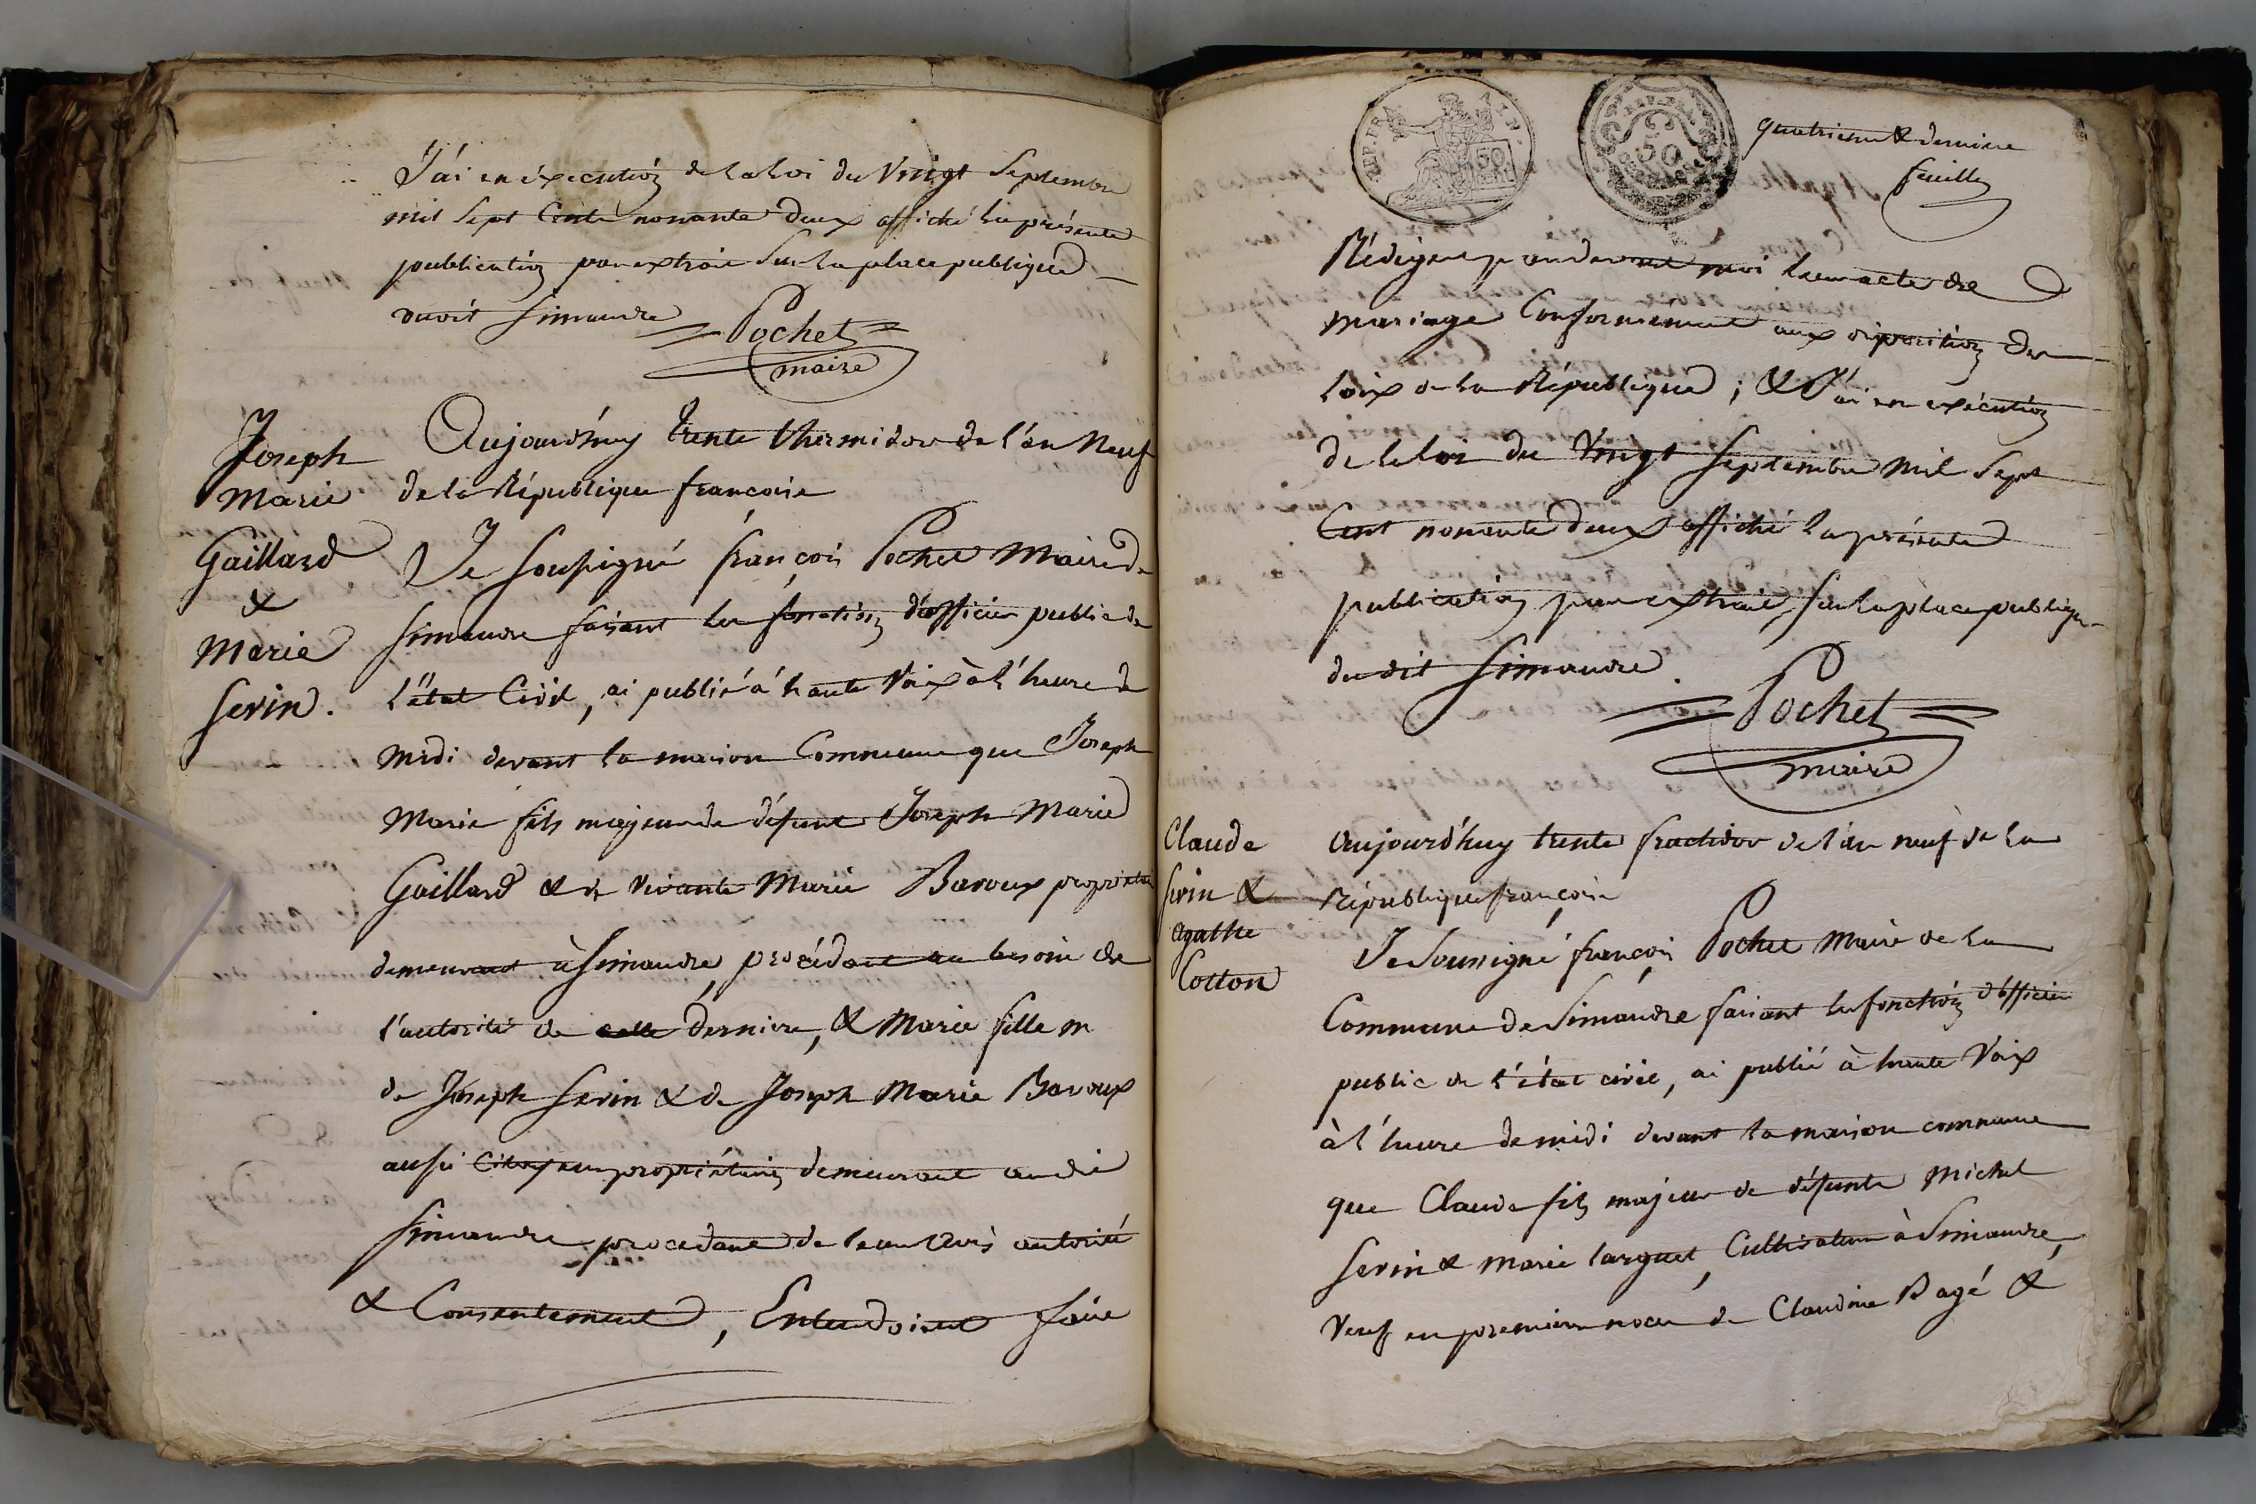 J'ai en éxécution de la Loi du Vingt Septembre
mil Sept Cents nonante Deux affiché la présente
publication par extrait Sur la place publique
dudit Simandre
Pochet
maire
Joseph
Marie
Gaillard
&
Marie
Serin.
Aujourd'huy trente thermidor de l'an Neuf
de la République françoise
Je Soussigné françois Pochet Maire de
Simandre faisant les fonctions d'officier public de
l'état Civil, ai publié à haute Voix à l'heure de
midi devant la maison Commune que Joseph
Marie fils majeur de défunt Joseph Marie
Gaillard & de vivante Marie Baroux propriétaire
demeurant à Simandre, procédant au besoin de
l'autorité de cette Dernière, & Marie fille m
de Joseph Serin & de Joseph Marie Baroux
aussi propriétaires demeurant audit
Simandre procedant de leurs avis autorité
& Consentement, Entendoient faire
REP. FRA. AIN.
50
REP. FRA.
50
quatrieme & derniere
feuille
Rédiger pardevant moi leur acte de
mariage Conformément aux disposition des
loix de la République ; & J'ai en exécution
de la loi du Vingt Septembre Mil Sept
Cent nonante deux affiché la présente
publication par extrait, sur la place publique
du dit Simandre.
Pochet
maire
Claude
Serin &
agathe
Cotton
Aujourd'huy trente fructidor de l'an neuf de la
République françoise
Je Soussigné françois Pochet Maire de la
Commune de Simandre faisant les fonctions d'officier
public de l'état civil, ai publié à haute Voix
à l'heure de midi devant la maison commune
que Claude fils majeur de défunts Michel
Serin & Marie larguet, Cultivateur à Simandre,
Veuf en premiere noces de Claudine Pagé &